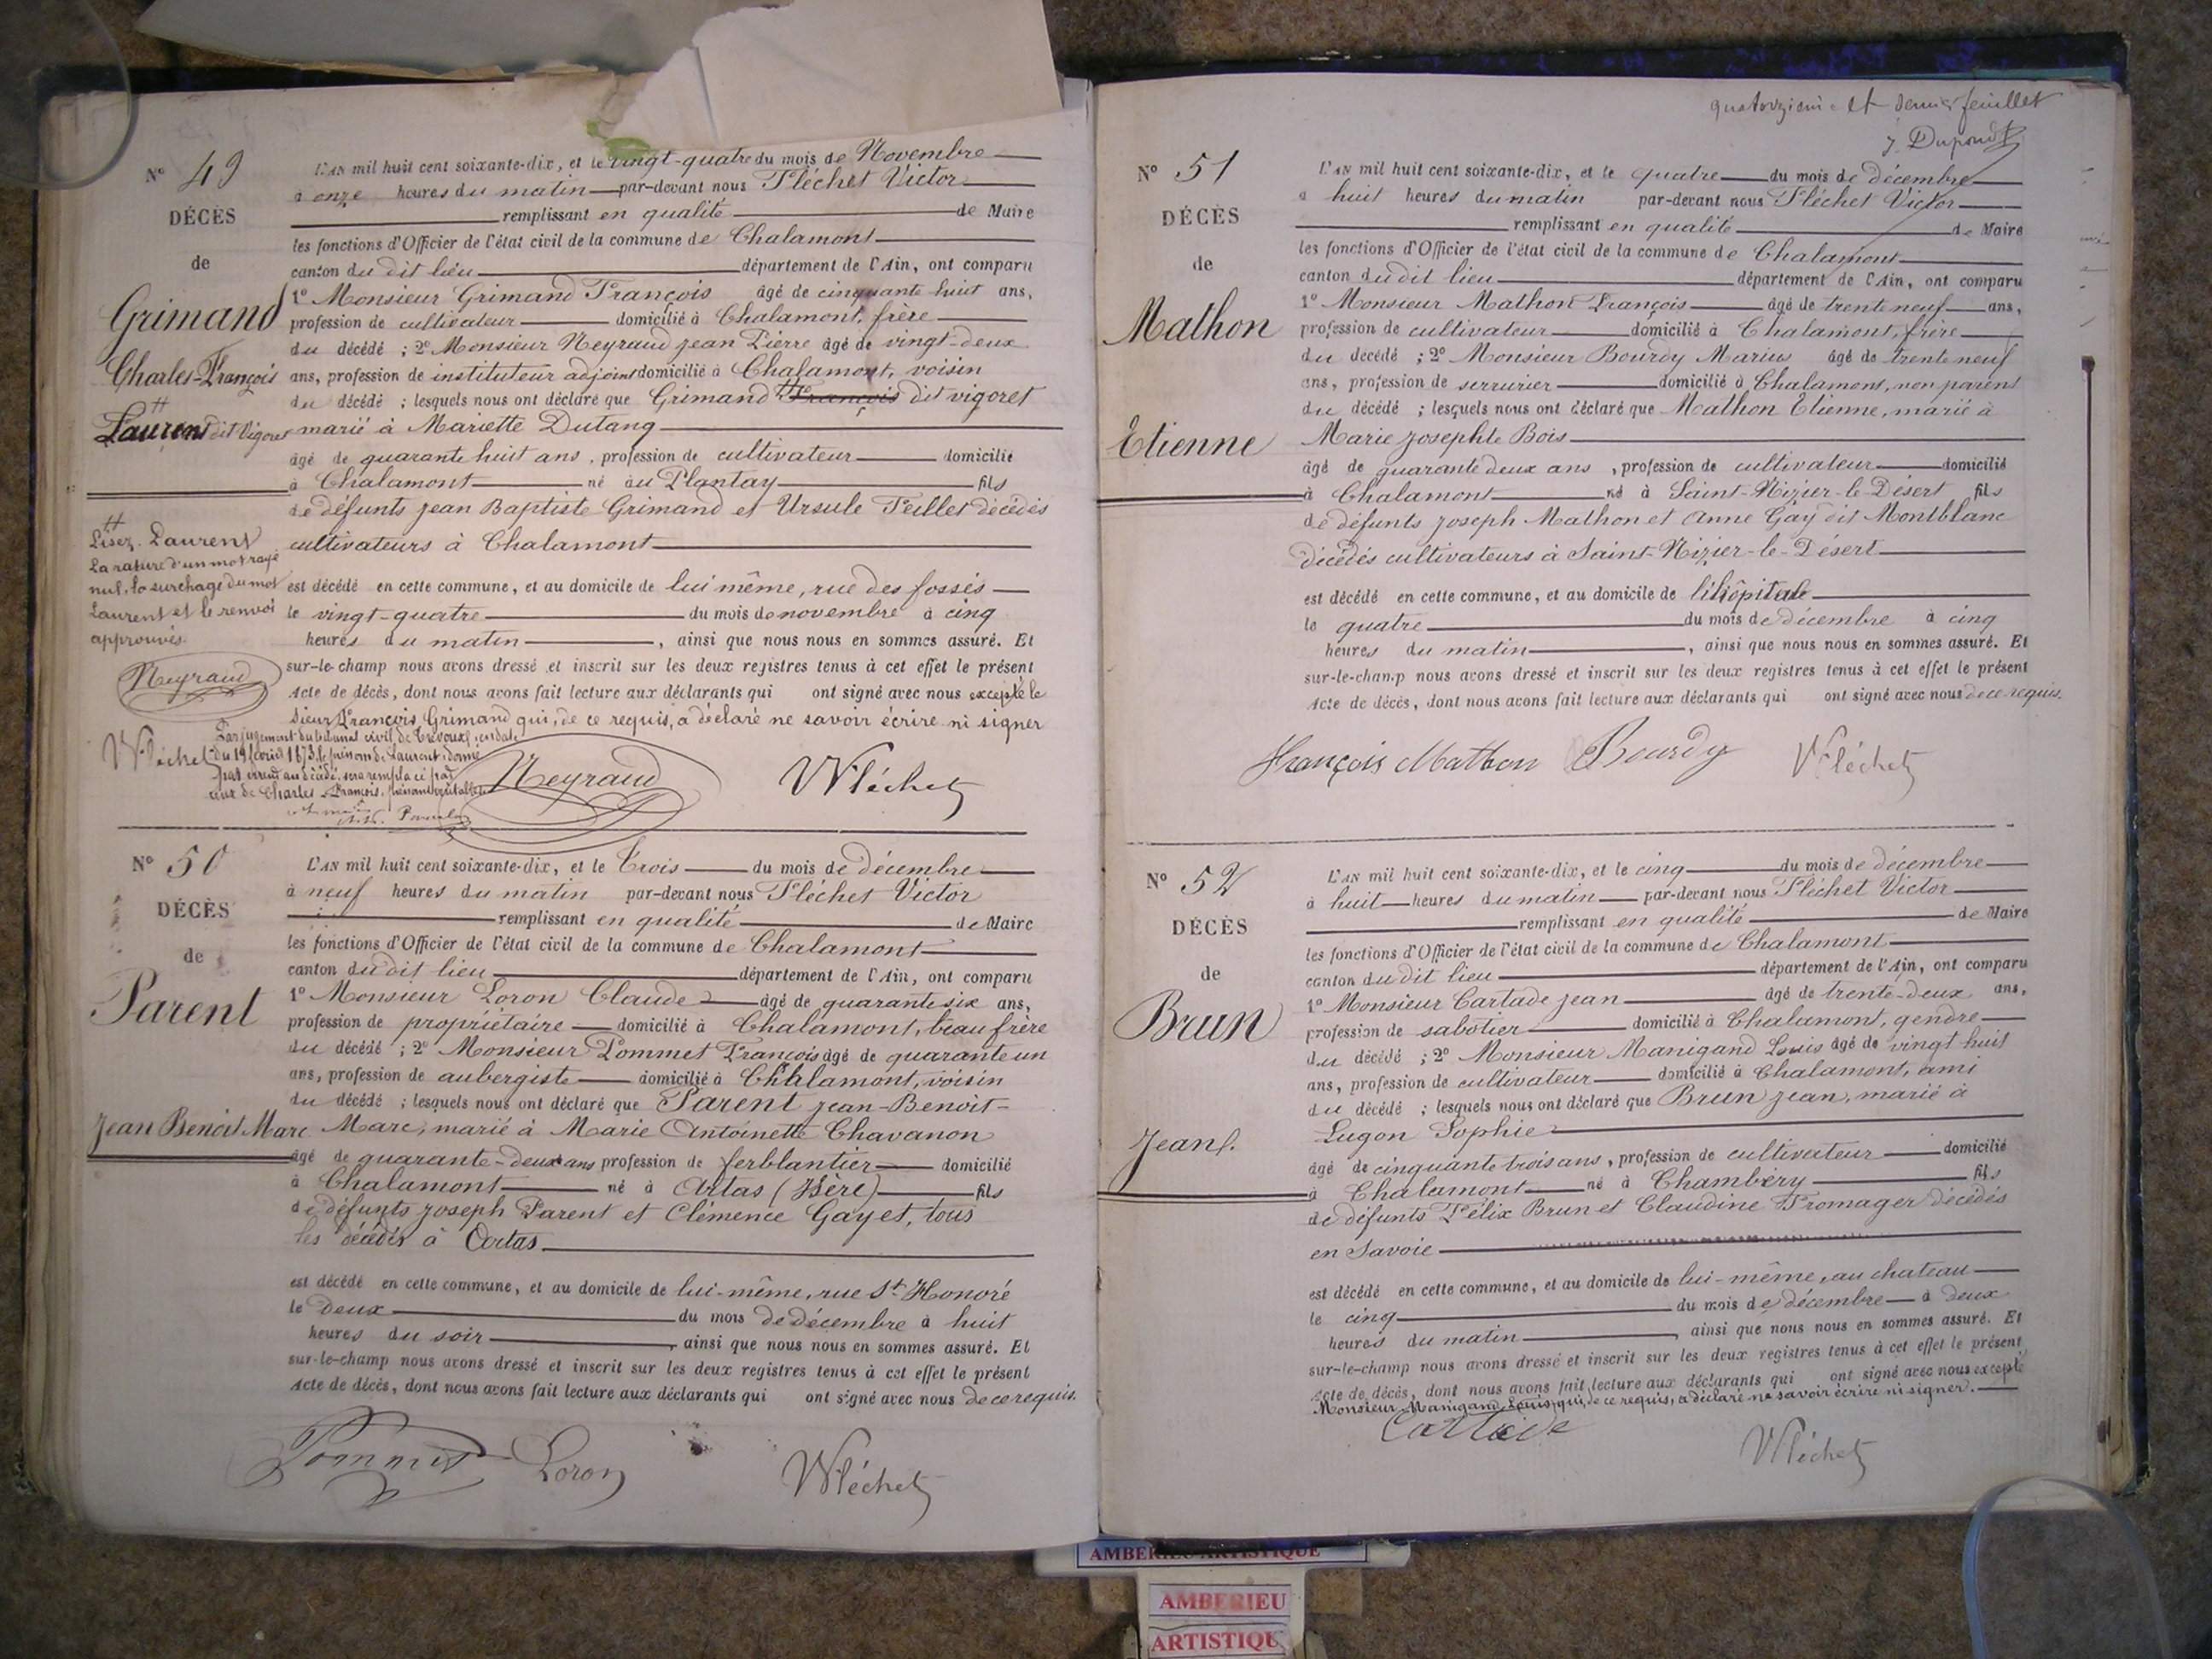 N° 49
DÉCÈS
de
Grimand
Charles-François
Laurent dit Vigoret
L'AN mil huit cent soixante-dix, et le vingt-quatre du mois de Novembre
à onze heures du matin par-devant nous Fléchet Victor
remplissant en qualité de Maire
les fonctions d'Officier de l'état civil de la commune de Chalamont
canton du dit lieu département de l'Ain, ont comparu
1° Monsieur Grimand François âgé de cinquante huit ans,
profession de cultivateur domicilié à Chalamont, frère
du décédé ; 2° Monsieur Neyraud Jean Pierre âgé de vingt-deux
ans, profession de instituteur adjoint domicilié à Chalamont, voisin
du décédé ; lesquels nous ont déclaré que Grimand François dit vigoret
marié à Mariette Dutang
âgé de quarante huit ans, profession de cultivateur domicilié
à Chalamont né au Plantay fils
de défunts Jean Baptiste Grimand et Ursule Feillet décédés
cultivateurs à Chalamont
est décédé en cette commune, et au domicile de lui même, rue des fossés
le vingt-quatre du mois de novembre à cinq
heures du matin, ainsi que nous nous en sommes assuré. Et
sur-le-champ nous avons dressé et inscrit sur les deux registres tenus à cet effet le présent
Acte de décès, dont nous avons fait lecture aux déclarants qui ont signé avec nous excepté le
sieur François Grimand qui, de ce requis, a déclaré ne savoir écrire ni signer
Lisez Laurent
La rature d'un mot rayé
nul, la surchage du mot
Laurent et le renvoi
approuvés.
Neyraud
VFléchet
Par jugement du tribunal civil de Trévoux, en date
du 19 février 1873, le prénom de Laurent, donné
par erreur au décédé, sera remplacé par
ceux de Charles François, prénoms véritables
Neyraud VFléchet
N° 50
DÉCÈS
de
Parent
Jean Benoit Marc
L'AN mil huit cent soixante-dix, et le Trois du mois de décembre
à neuf heures du matin par-devant nous Fléchet Victor
remplissant en qualité de Maire
les fonctions d'Officier de l'état civil de la commune de Chalamont
canton du dit lieu département de l'Ain, ont comparu
1° Monsieur Loron Claude âgé de quarante six ans,
profession de propriétaire domicilié à Chalamont, beau frère
du décédé ; 2° Monsieur Pommet François âgé de quarante un
ans, profession de aubergiste domicilié à Chalamont, voisin
du décédé ; lesquels nous ont déclaré que Parent Jean-Benoit-
Marc, marié à Marie Antoinette Chavanon
âgé de quarante-deux ans profession de ferblantier domicilié
à Chalamont né à Artas (Isère) fils
de défunts Joseph Parent et Clémence Gayet, tous
les décédés à Artas
est décédé en cette commune, et au domicile de lui-même, rue St Honoré
le deux du mois de décembre à huit
heures du soir, ainsi que nous nous en sommes assuré. Et
sur-le-champ nous avons dressé et inscrit sur les deux registres tenus à cet effet le présent
Acte de décès, dont nous avons fait lecture aux déclarants qui ont signé avec nous de ce requis.
Pommet Loron VFléchet
quatorzième et dernier feuillet
J. Dupond
N° 51
DÉCÈS
de
Mathon
Etienne
L'AN mil huit cent soixante-dix, et le quatre du mois de décembre
à huit heures du matin par-devant nous Fléchet Victor
remplissant en qualité de Maire
les fonctions d'Officier de l'état civil de la commune de Chalamont
canton du dit lieu département de l'Ain, ont comparu
1° Monsieur Mathon François âgé de trente neuf ans,
profession de cultivateur domicilié à Chalamont, frère
du décédé ; 2° Monsieur Bourdy Marius âgé de trente neuf
ans, profession de serrurier domicilié à Chalamont, non parent
du décédé ; lesquels nous ont déclaré que Mathon Etienne, marié à
Marie Josephte Bois
âgé de quarante deux ans, profession de cultivateur domicilié
à Chalamont né à Saint-Nizier-le-Désert fils
de défunts Joseph Mathon et Anne Gay dit Montblanc
décédés cultivateurs à Saint-Nizier-le-Désert
est décédé en cette commune, et au domicile de l'hôpital
le quatre du mois de décembre à cinq
heures du matin, ainsi que nous nous en sommes assuré. Et
sur-le-champ nous avons dressé et inscrit sur les deux registres tenus à cet effet le présent
Acte de décès, dont nous avons fait lecture aux déclarants qui ont signé avec nous de ce requis.
François Mathon Bourdy VFléchet
N° 52
DÉCÈS
de
Brun
Jean.
L'AN mil huit cent soixante-dix, et le cinq du mois de décembre
à huit heures du matin par-devant nous Fléchet Victor
remplissant en qualité de Maire
les fonctions d'Officier de l'état civil de la commune de Chalamont
canton du dit lieu département de l'Ain, ont comparu
1° Monsieur Cartade Jean âgé de trente-deux ans,
profession de sabotier domicilié à Chalamont, gendre
du décédé ; 2° Monsieur Manigand Louis âgé de vingt huit
ans, profession de cultivateur domicilié à Chalamont, ami
du décédé ; lesquels nous ont déclaré que Brun Jean, marié à
Lugon Sophie
âgé de cinquante trois ans, profession de cultivateur domicilié
à Chalamont né à Chambéry fils
de défunts Félix Brun et Claudine Fromager décédés
en Savoie
est décédé en cette commune, et au domicile de lui-même, au chateau
le cinq du mois de décembre à deux
heures du matin, ainsi que nous nous en sommes assuré. Et
sur-le-champ nous avons dressé et inscrit sur les deux registres tenus à cet effet le présent
Acte de décès, dont nous avons fait lecture aux déclarants qui ont signé avec nous excepté
Monsieur Manigand Louis qui, de ce requis, a déclaré ne savoir écrire ni signer.
Cartade
VFléchet
AMBERIEU ARTISTIQUE
AMBERIEU
ARTISTIQU